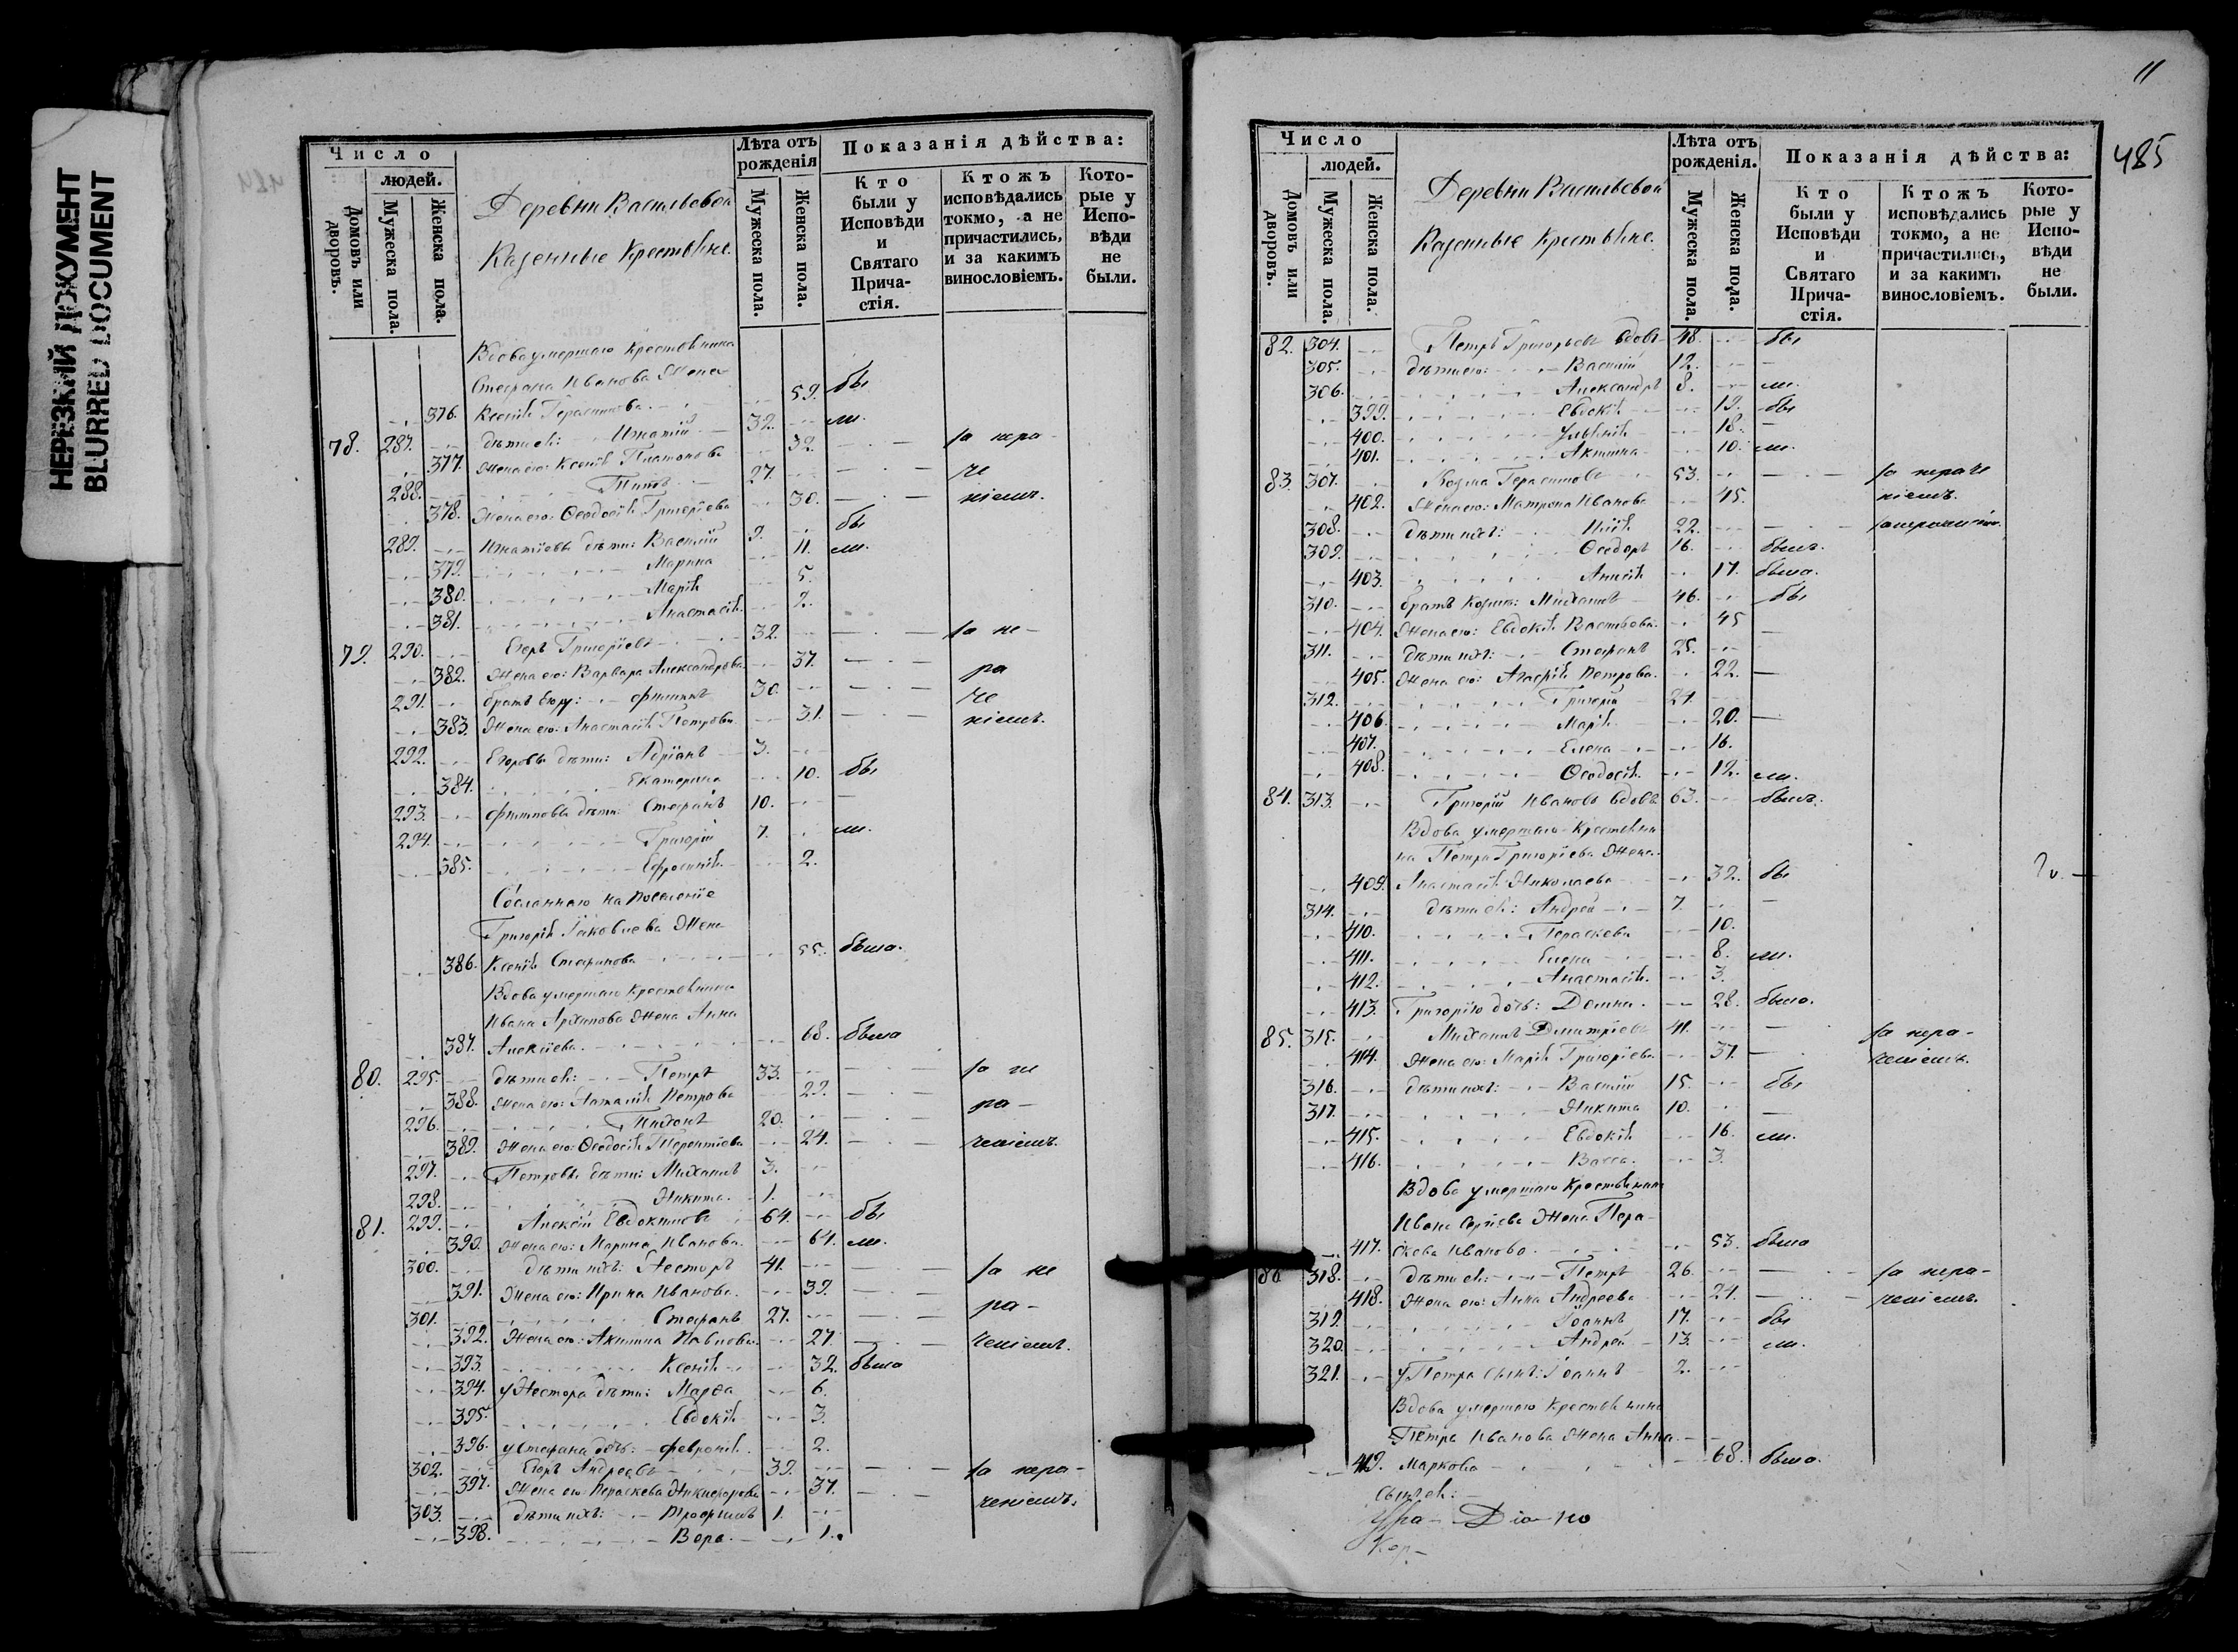 НЕРЕЗКИЙ ДОКУМЕНТ
BLURRED DOCUMENT
Число
людей.
Домовъ или дворовъ.
Мужеска пола.
Женска пола.
Деревни Васильевой
Казенные Крестьяне.
Лѣта отъ рожденія
Мужеска пола.
Женска пола.
Показанія дѣйства:
Кто были у Исповѣди и Святаго Прича-стія.
Ктожъ исповѣдались токмо, а не причастились, и за какимъ винословіемъ.
Кото-рые у Испо-вѣди не были.
Вдова умершаго Крестьянина
Стефана Иванова Жена
376. Ксенія Герасимова 59. бы
78. 287. дѣти ея: Игнатій 32. ли.
377. Жена его: Ксенія Платонова 32. за нера-
288. Титъ 27. че
378. Жена его: Ѳеодосія Григорієва 30. ніемъ.
289. Игнатіевы дѣти: Василій 9. бы
379. Марина 11. ли.
380. Марія 5.
381. Анастасія 2.
79. 290. Егоръ Григоріевъ 32. за не-
382. Жена его: Варвара Александрова 37. ра
291. братъ Егору: Филиппъ 30. че
383. Жена его: Анастасія Петрова 31. ніемъ.
292. Егоровы дѣти: Адріанъ 3.
384. Екатерина 10. бы
293. Филиповы дѣти: Стефанъ 10.
294. Григорій 7. ли.
385. Ефросинія 2.
Сосланнаго на поселеніе
Григорія Іаковлева Жена
386. Ксенія Стефанова 55. была.
Вдова умершаго Крестьянина
Ивана Архипова Жена Анна
387. Алексіева 68. была
80. 295. дѣти ея: Петръ 33. за не
388. Жена его: Наталія Петрова 29. ра-
296. Тихонъ 20.
389. Жена его: Ѳеодосія Терентіева 24. ченіемъ.
297. Петровы дѣти: Михаилъ 3.
298. Никита 1.
81. 299. Алексій Евдокимовъ 64. бы
390. Жена его: Марина Иванова 64. ли.
300. дѣти ихъ: Несторъ 41. за не
391. Жена его: Ирина Иванова 39. ра-
301. Стефанъ 27.
392. Жена его: Акилина Павлова 27 ченіемъ.
393. Ксенія 32. была
394. у Нестора дѣти: Марѳа 6.
395. Евдокія 3.
396. у Стефана дочь: Февронія 2.
302. Егоръ Андреевъ 39. за нера-
397. Жена его: Параскева Никифорова 37. ченіемъ.
303. дѣти ихъ: Трофимъ 1.
398. Вера 1.
11
485
Число
людей.
Домовъ или дворовъ.
Мужеска пола.
Женска пола.
Деревни Васильевой
Казенные Крестьяне.
Лѣта отъ рожденія.
Мужеска пола.
Женска пола.
Показанія дѣйства:
Кто были у Исповѣди и Святаго Прича-стія.
Ктожъ исповѣдались токмо, а не причастились, и за какимъ винословіемъ.
Кото-рые у Испо-вѣди не были.
82. 304. Петръ Григорьевъ вдовъ 48. бы
305. дѣти его: Василій 12.
306. Александръ 8. ли.
399. Евдокія 19. бы
400. Ульянія 18.
401. Акилина 10. ли.
83. 307. Козма Герасимовъ 53. за нераче
402. Жена его: Матрона Иванова 45. ніемъ.
308. дѣти ихъ: Илія 22.
309. Ѳеодоръ 16. былъ.
403. Анисія 17. была.
310. братъ Козмы: Михаилъ 46. бы
404. Жена его: Евдокія Васильева 45
311. дѣти ихъ: Стефанъ 25.
405. Жена его: Агафія Петрова 22.
312. Григорій 21.
406. Марія 20.
407. Елена 16.
408. Ѳеодосія 12. ли.
84. 313. Григорій Ивановъ вдовъ 63. былъ.
Вдова умершаго Крестьяни
на Петра Григоріева Жена
409. Анастасія Николаева 32. бы
314. дѣти ея: Андрей 7.
410. Параскева 10.
411. Елена 8. ли.
412. Анастасія 3.
413. Григорію дочь: Домна 28. была.
85. 315. Михаилъ Дмитріевъ 41. за нера-
414. Жена его: Марія Григоріева 37. ченіемъ.
316. дѣти ихъ: Василій 15. бы
317. Никита 10.
415. Евдокія 16. ли.
416. Васса 3.
Вдова умершаго Крестьянина
Ивана Сергіева Жена Пара-
417. скева Иванова 53. была
86 318. дѣти ея: Петръ 26. за нера-
418. Жена его: Анна Андреева 24. ченіемъ.
319. Іоаннъ 17. бы
320. Андрей 13. ли.
321. у Петра сынъ: Іоаннъ 2.
Вдова умершаго Крестьянина
Петра Иванова Жена Анна
419. Маркова 68. была.
сынъ ея: